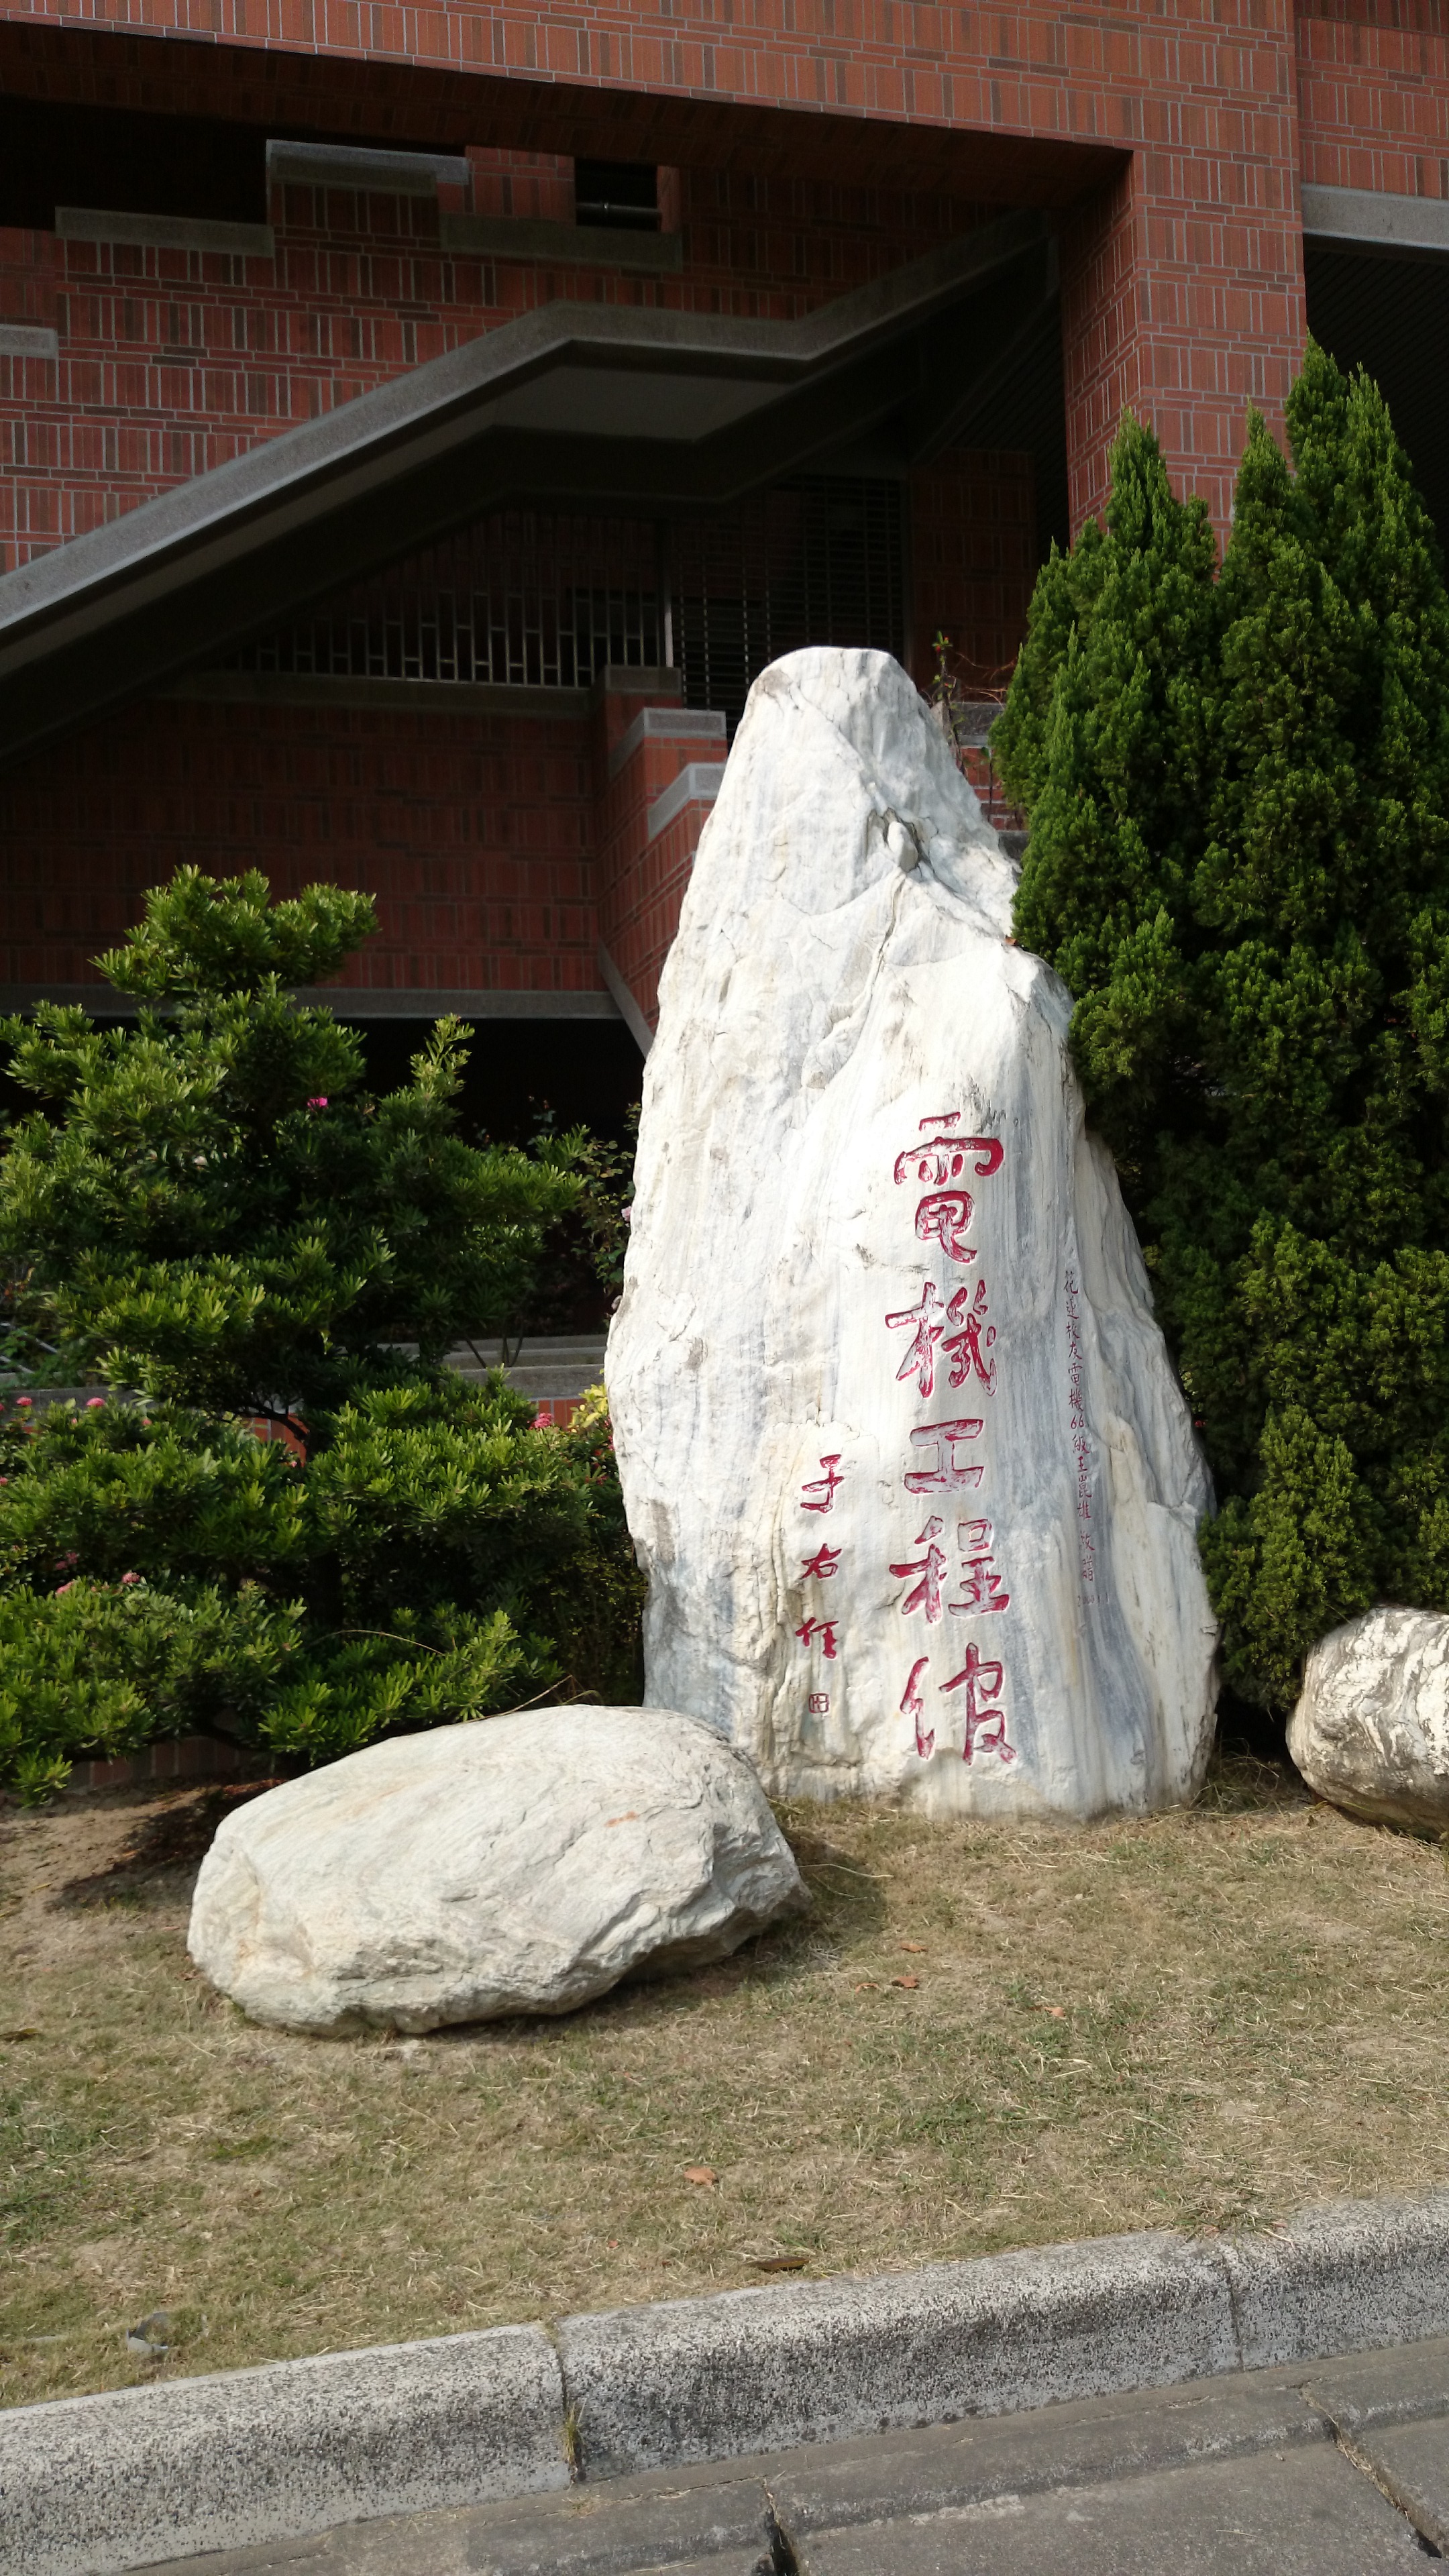 花蓮校友電機66級王崑雄 敬贈
電機工程館
于右任